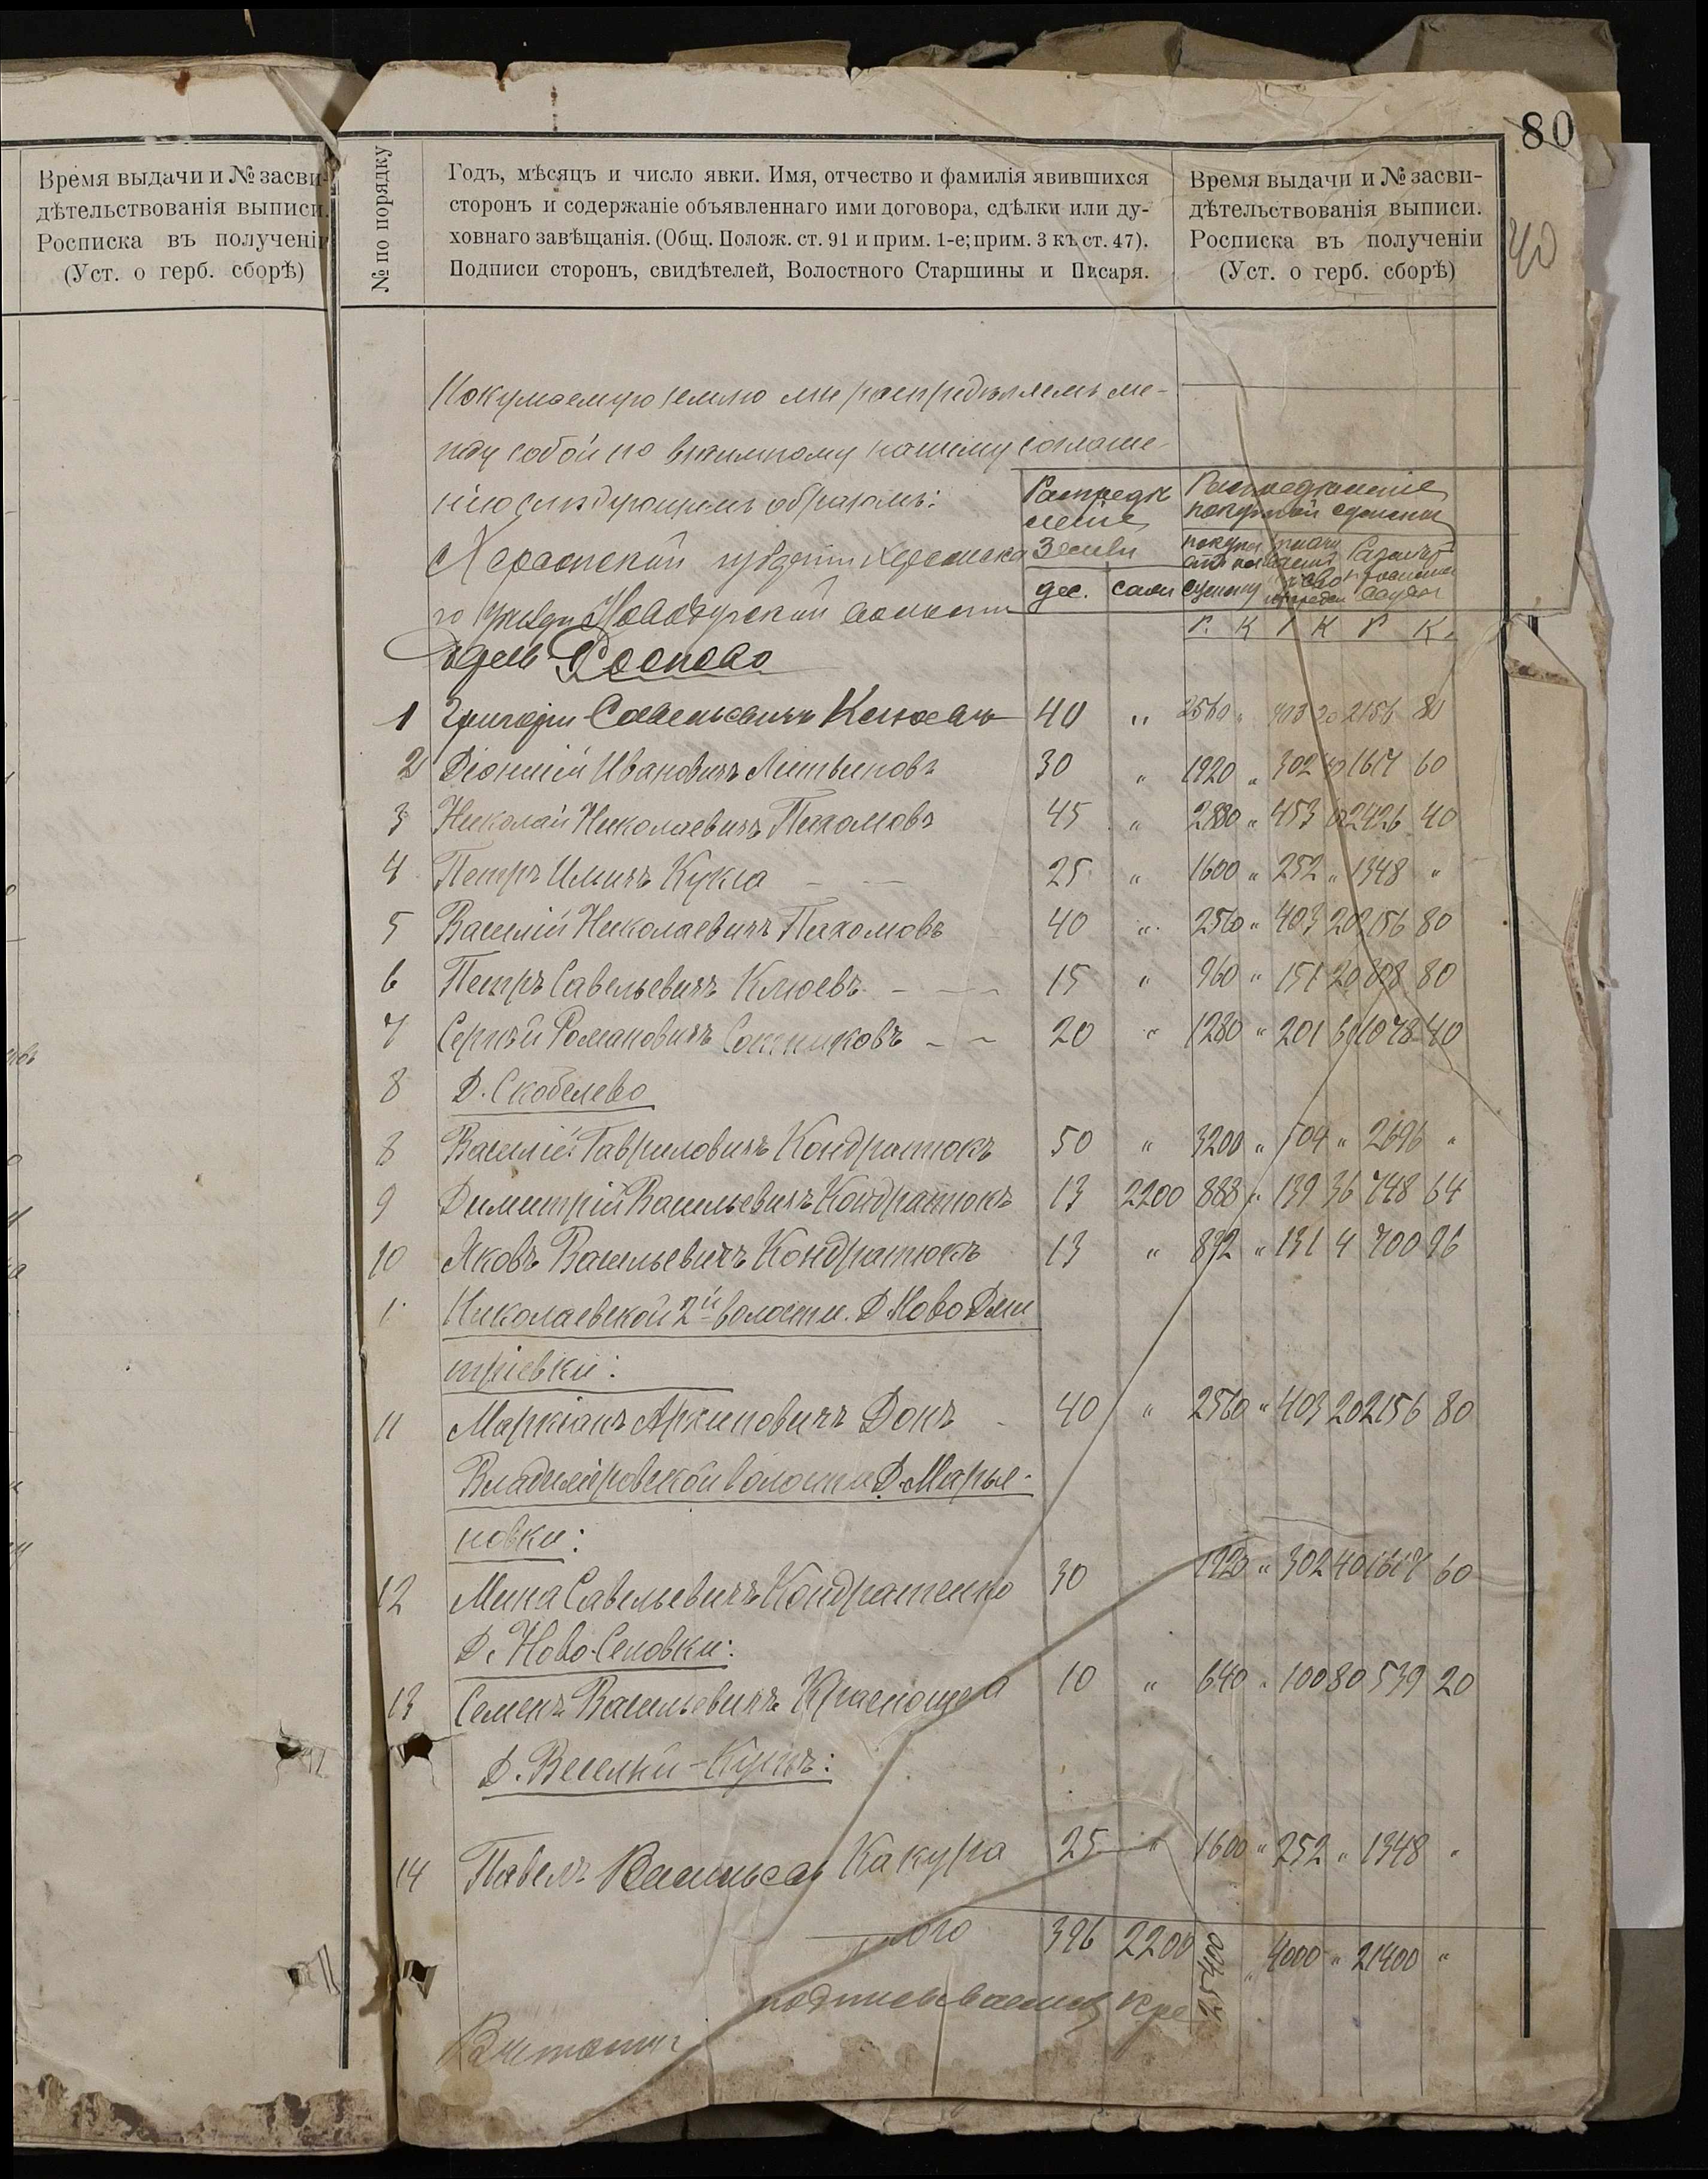 80
40
Время выдачи и № засви-
дѣтельствованія выписи.
Росписка въ полученіи
(Уст. о герб. сборѣ)
№ по порядку
Годъ, мѣсяцъ и число явки. Имя, отчество и фамилія явившихся
сторонъ и содержаніе объявленнаго ими договора, сдѣлки или ду-
ховнаго завѣщанія. (Общ. Полож. ст. 91 и прим. 1-е; прим. 3 къ ст. 47).
Подписи сторонъ, свидѣтелей, Волостного Старшины и Писаря.
Время выдачи и № засви-
дѣтельствованія выписи.
Росписка въ полученіи
(Уст. о герб. сборѣ)
Покупаемую землю мы распредѣляемъ ме-
жду собой по взаимному нашему соглаше-
нію слѣдующимъ образомъ:
Распредѣ
леніе
Земли
дес. саж
Распредѣленіе
покупной
Р. К Р К Р К.
Херсонской губерніи Херсонска
го уѣзда Новобугской волости
1 Григорій Савельевичъ Клюевъ 40 " 2560 " 403 20 2156 80
2 Діонисій Ивановичъ Литвиновъ 30 " 1920 " 302 40 1617 60
3 Николай Николаевичъ Пахомовъ 45 " 2880 " 453 60 2426 40
4 Петръ Ильичъ Кукса 25 " 1600 " 252 " 1348 "
5 Василій Николаевичъ Пахомовъ 40 " 2560 " 403 20 2156 80
6 Петръ Савельевичъ Клюевъ 15 " 960 " 151 20 808 80
7 Сергѣй Романовичъ Сотниковъ 20 " 1280 " 201 60 1078 40
8 Д. Скобелево
8 Василій Гавриловичъ Кондратюкъ 50 " 3200 " 504 " 2696 "
9 Димитрій Васильевичъ Кондратюкъ 13 2200 888 " 139 36 748 64
10 Яковъ Васильевичъ Кондратюкъ 13 " 832 " 131 4 700 96
1 Николаевской 2й волости. Д. Ново Дми
тріевки:
11 Маркіанъ Архиповичъ Донъ 40 " 2560 " 403 20 2156 80
Владиміровской волости Д. Марья-
новки:
12 Мина Савельевичъ Кондратенко 30 1920 " 302 40 1617 60
Д. Ново-Селовки:
13 Семенъ Васильевичъ Краснощека 10 " 640 " 100 80 539 20
Д. Веселый-Кутъ:
14 Павелъ Васильев Какура 25 " 1600 " 252 " 1348 "
396 2200 25400 " 4000 " 21400 "
подписываемся